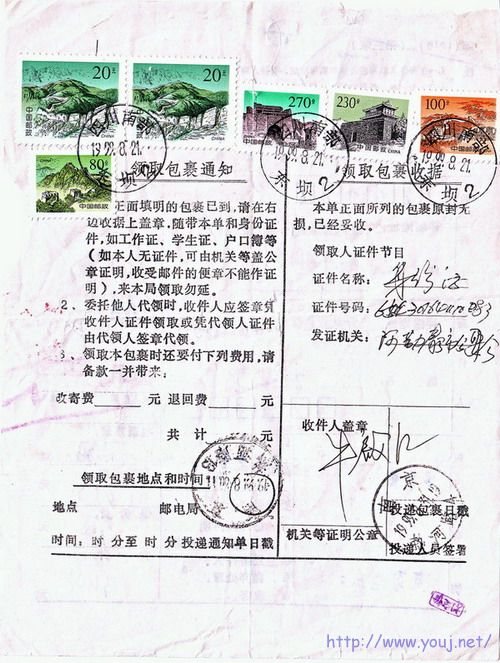 20元
20元
270分
230分
100分
80分
中国邮政
CHINA
中国邮政
CHINA
中国邮政
中国邮政
CHINA
中国邮政
中国邮政
四川南部
1999.8.21.
东坝
2
四川南部
1999.8.21.
东坝
2
四川南部
1999.8.21.
东坝
2
领取包裹通知
1、正面填明的包裹已到，请在右
边收据上盖章，随带本单和身份证
件，如工作证、学生证、户口簿等
（如本人无证件，可由机关等盖公
章证明，收受邮件的便章不能作证
明），来本局领取勿延。
2、委托他人代领时，收件人应签章凭
收件人证件领取或凭代领人证件
由代领人签章代领。
3、领取本包裹时还要付下列费用，请
备款一并带来：
改寄费 元 退回费 元
共计 元
领取包裹地点和时间
地点 邮电局
时间：时 分至 时 分 投递通知单日戳
领取包裹收据
本单正面所列的包裹原封无
损，已经妥收。
领取人证件节目
证件名称：
证件号码：
发证机关：
收件人盖章
机关等证明公章
投递包裹日戳
投递人员签署
http://www.youj.net/